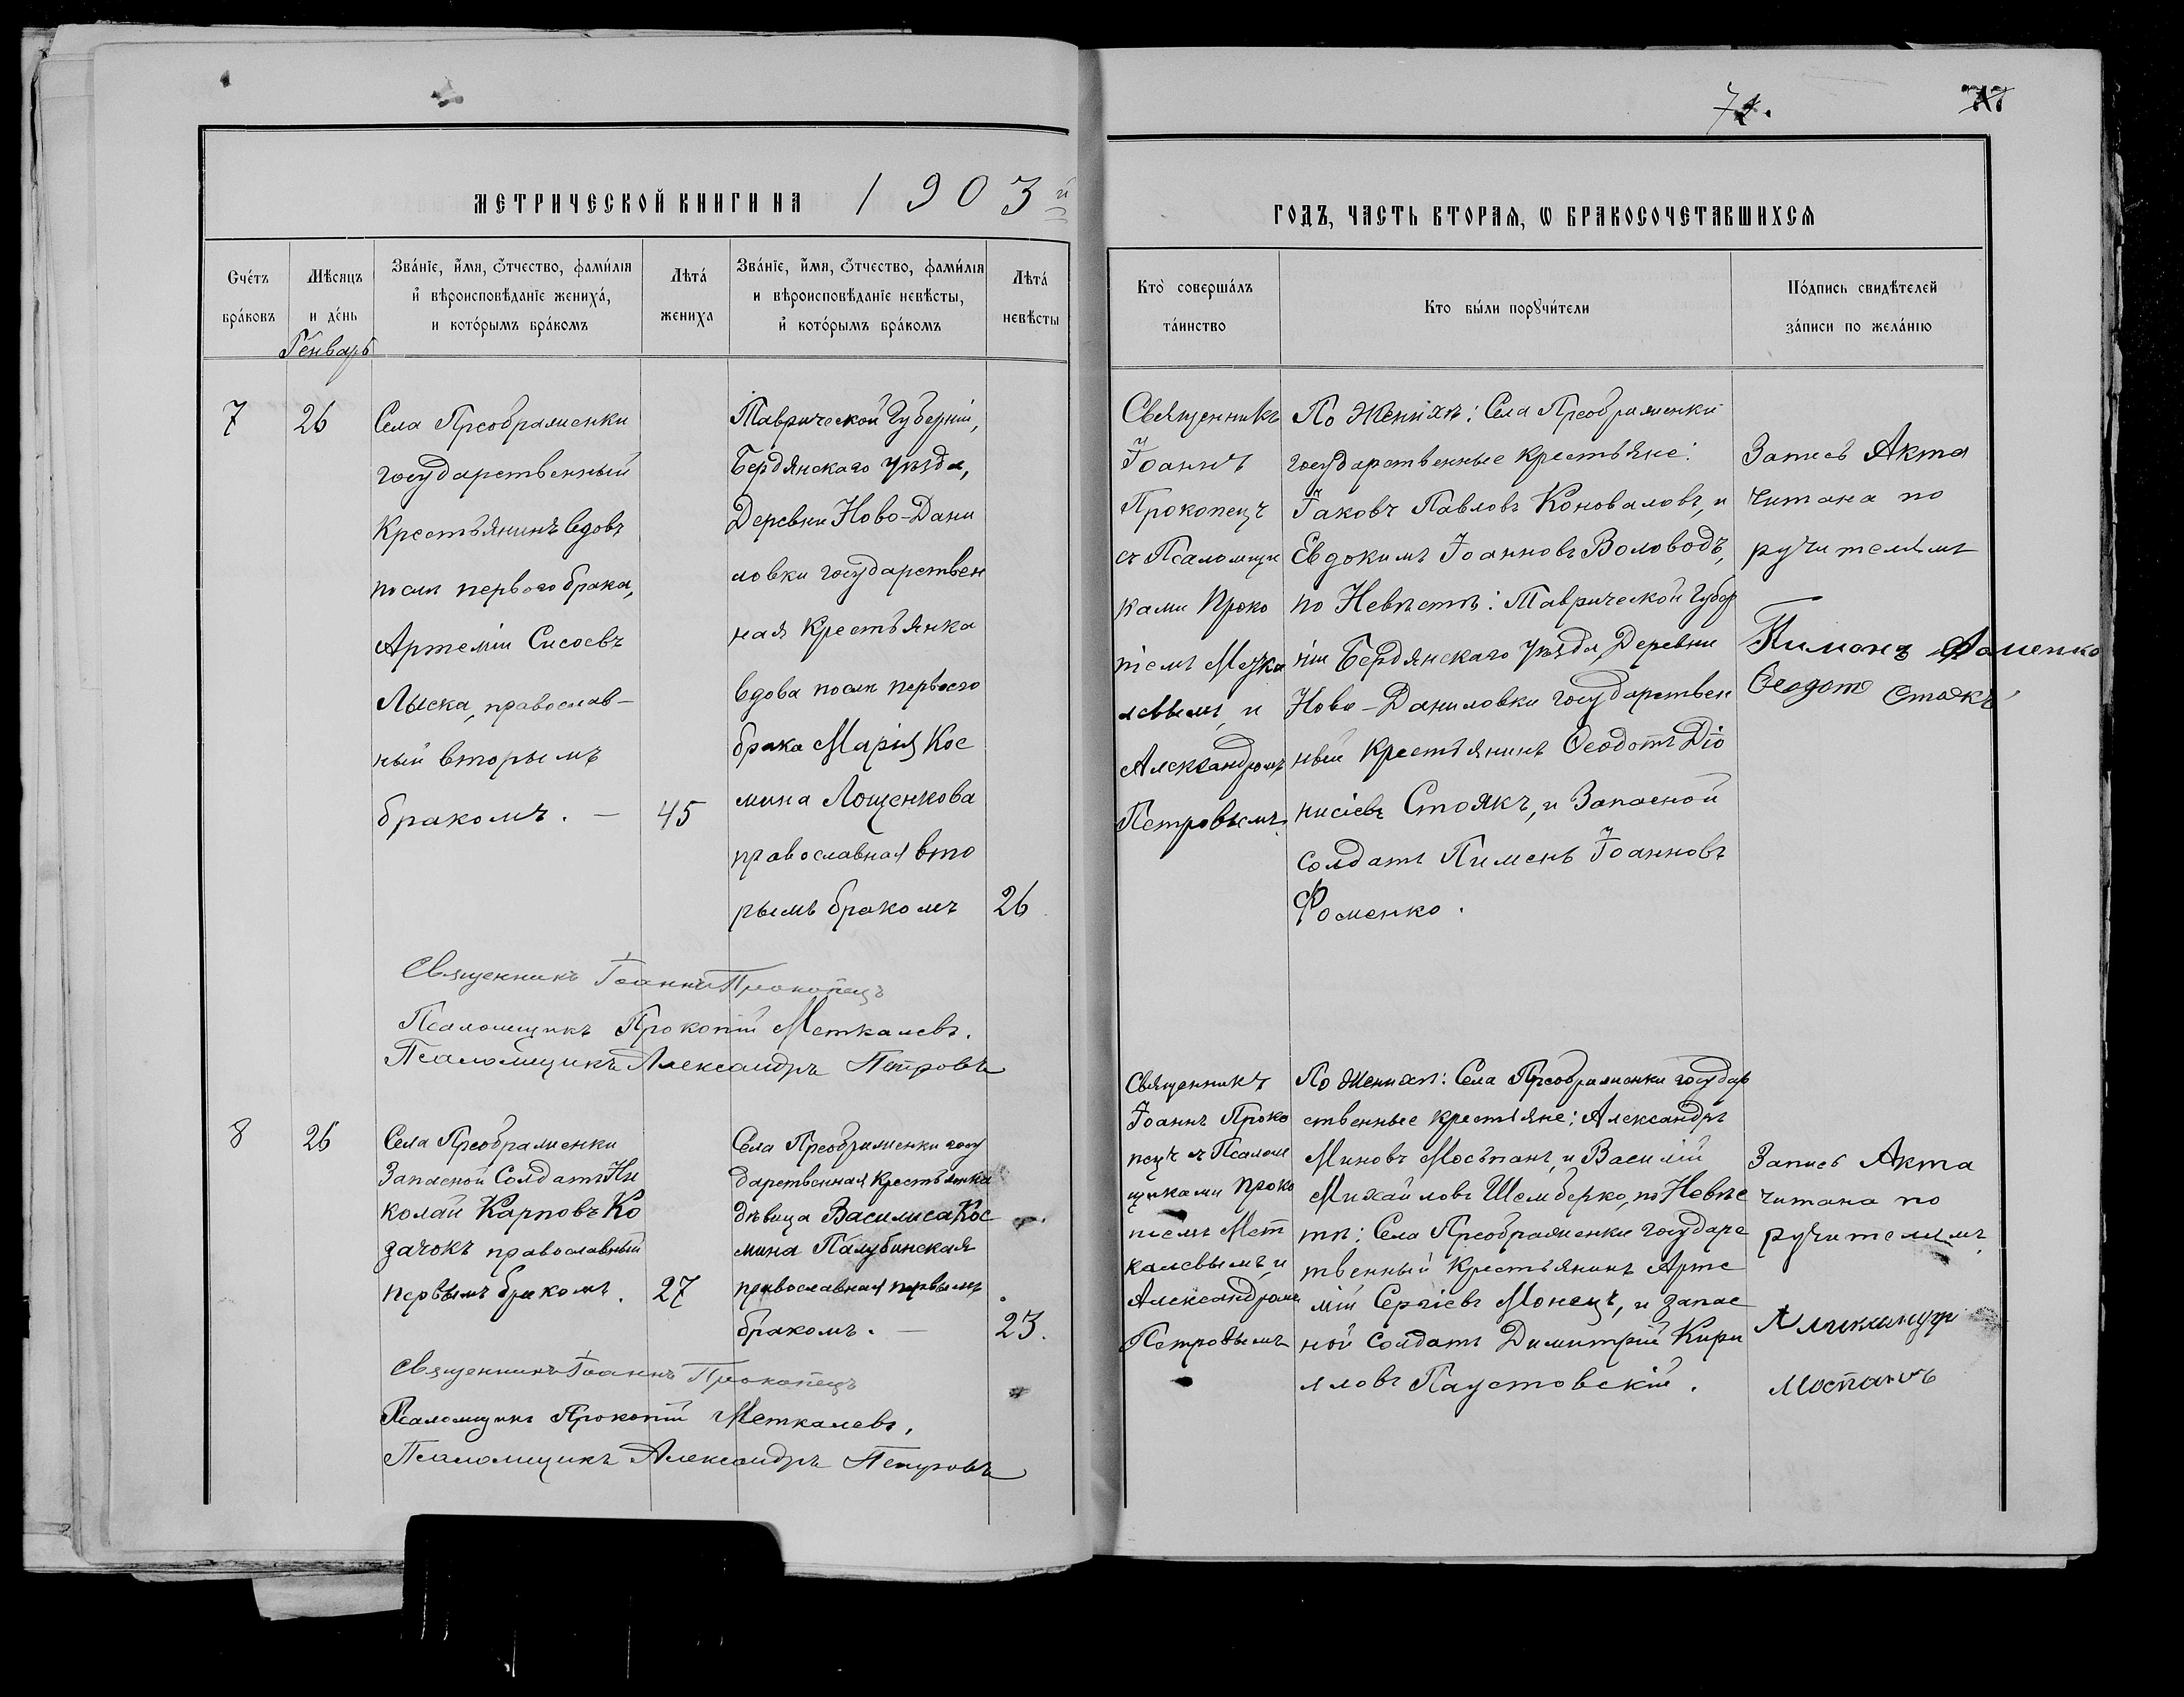 72.
МЕТРИЧЕСКОЙ КНИГИ НА 1903й
ГОДЪ, ЧАСТЬ ВТОРАЯ, Ѡ БРАКОСОЧЕТАВШИХСЯ
Счéтъ брáковъ
Мѣсяцъ и дéнь
Генварь
Звáнїе, и́мя, ѻ́тчество, фами́лїя
и҆ вѣроисповѣ́данїе женихá,
и котóрымъ брáкомъ
Лѣтá жениха
Звáнїе, и́мя, ѻ́тчество, фами́лїя
и вѣроисповѣ́данїе невѣ́сты,
и҆ котóрымъ брáкомъ
Лѣтá невѣсты
Кто̀ совершáлъ тáинство
Кто бы́ли порꙋчи́тели
Пóдпись свидѣ́телей
зáписи по желáнїю
7
26
Села Преображенки
государственный
Крестьянинъ вдовъ
послѣ первого брака,
Артемій Сисоевъ
Лыска, православ-
ный вторымъ
бракомъ. —
45
Таврической Губерніи,
Бердянскаго уѣзда,
Деревни Ново-Дани
ловки государствен
ная Крестьянка
вдова послѣ первого
брака Марія Кос
мина Лощенкова
православная вто
рымъ бракомъ
26
Священникъ
Іоаннъ
Прокопецъ
съ Псаломщи
ками Проко
піемъ Метка
левымъ, и
Александромъ
Петровымъ.
По Женихѣ: Села Преображенки
государственные крестьяне:
Іаковъ Павловъ Коноваловъ, и
Евдокимъ Іоанновъ Воловодъ,
по Невѣстѣ: Таврической Губер
ніи Бердянскаго уѣзда, Деревни
Ново-Даниловки государствен
ный Крестьянинъ Ѳеодотъ Діо
нисіевъ Стоякъ, и Запасной
солдатъ Пименъ Іоанновъ
Фоменко.
Запись Акта
читана по
ручителямъ
Пимонъ Фоменко
Ѳеодотъ Стоякъ
Священникъ Іоаннъ Прокопецъ
Псаломщикъ Прокопій Меткалевъ.
Псаломщикъ Александръ Петровъ
8
26
Села Преображенки
Запасной Солдатъ Ни
колай Карповъ Ко
зачокъ православный
первымъ бракомъ.
27
Села Преображенки госу
дарственная крестьянка
дѣвица Василиса Кос
мина Палубинская
православная первымъ
бракомъ. —
23.
Священникъ
Іоаннъ Проко
пецъ съ Псалом
щиками Проко
піемъ Мет
калевымъ, и
Александромъ
Петровымъ
По Женихѣ: Села Преображенки государ
ственные крестьяне: Александръ
Миновъ Мосьпанъ, и Василій
Михайловъ Шемберко, по Невѣс
тѣ: Села Преображенки государс
твенный Крестьянинъ Арте
мій Сергіевъ Монецъ, и запас
ной солдатъ Димитрій Кири
лловъ Паустовскій.
Запись Акта
читана по
ручителямъ
Мостанъ
Священникъ Іоаннъ Прокопецъ
Псаломщикъ Прокопій Меткалевъ,
Псаломщикъ Александръ Петровъ